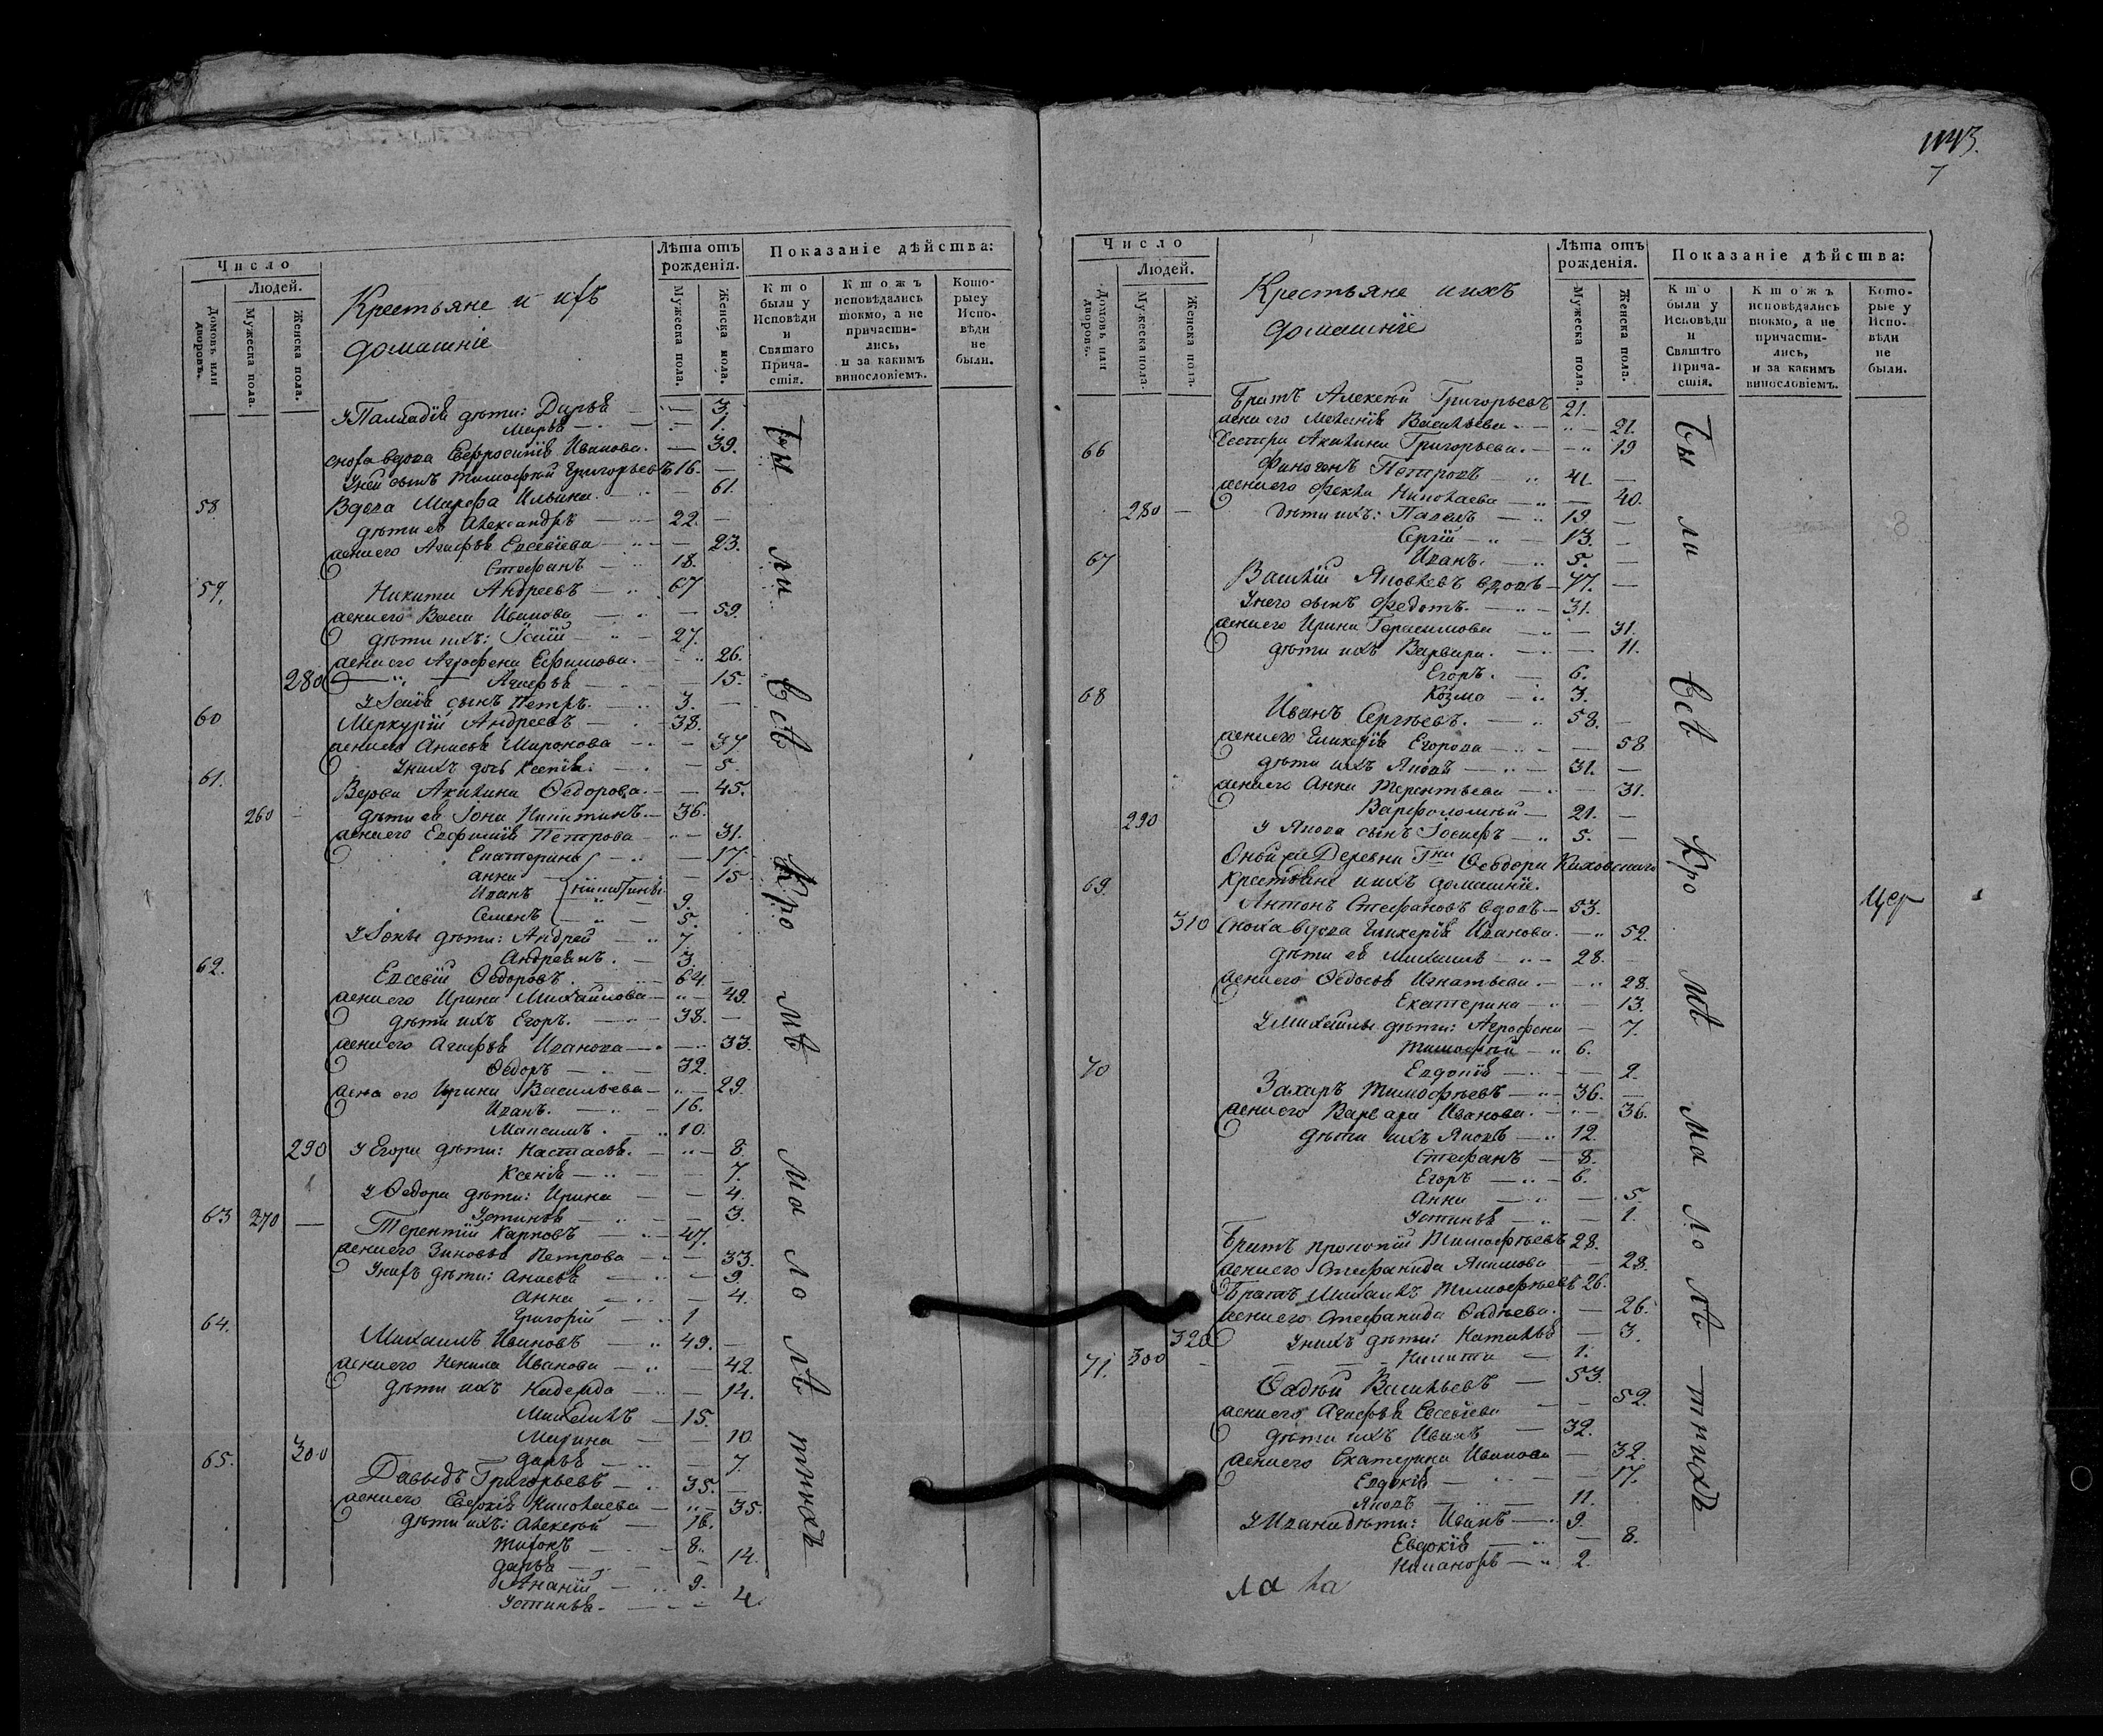 Число
Людей.
Домовъ или дворовъ.
Мужеска пола.
Женска пола.
Крестьяне и ихъ
домашніе
Лѣта отъ рожденія.
Мужеска пола.
Женска пола.
Показаніе дѣйства:
Кто были у Исповѣди и Святаго Причастія.
Ктожъ исповѣдались токмо, а не причастились, и за какимъ винословіемъ.
Которые у Исповѣди не были.
дѣти: Дарья 3.
Марья 1.
вдова Евфросинія Иванова. 39.
У ней сынъ Тимофѣй Григорьевъ 16.
58. Вдова Марфа Ильина. 61.
дѣти ея Александръ 22.
жена его Агафья Евсевіева 23.
Стефанъ 18.
59. Никита Андреевъ 67
жена его Васса Иванова 59.
дѣти ихъ: 27.
жена его Агрофена Ефимова. 26.
280 Агафья 15.
сынъ Петръ. 3.
60 Меркурій Андреевъ 38.
жена его Анисья Миронова 37
У нихъ дочь Ксенія. 5.
61. Вдова Акилина Ѳедорова. 45.
260 дѣти ея Іона Никитинъ. 36.
жена его Евфимія Петрова 31.
Екатерина 17.
Анна 15
Иванъ Никитины 9.
Семенъ 5.
У Іоны дѣти: Андрей 7.
Андреянъ. 3.
62. Евсевій Ѳедоровъ. 64.
жена его Ирина Михайлова 49.
дѣти ихъ Егоръ. 38.
жена его Агафья Иванова 33.
Ѳедоръ 32.
жена его Ирина Васильева 29.
Иванъ. 16.
Максимъ. 10.
290 У Егора дѣти: Настасья. 8.
Ксенія 7.
У Ѳедора дѣти: Ирина 4.
Устинья 3.
63 270 Терентій Карповъ 47.
жена его Зиновья Петрова 33.
У нихъ дѣти: Анисья 9.
Анна 4.
Григорій 1
64. Михаилъ Ивановъ 49.
жена его Ненила Иванова 42.
дѣти ихъ Надежда 14.
Михаилъ 15.
Марина 10.
300 Дарья 7.
65. Давыдъ Григорьевъ 35.
жена его Евдокія Николаева 35.
дѣти ихъ: Алексѣй 16.
Тихонъ 8.
Дарья 14.
Ананій 9.
Устинья. 4.
Были всѣ кромѣ малолѣтнихъ
7
Число
Людей.
Домовъ или дворовъ.
Мужеска пола.
Женска пола.
Крестьяне и ихъ
домашніе
Лѣта отъ рожденія.
Мужеска пола.
Женска пола.
Показаніе дѣйства:
Кто были у Исповѣди и Святаго Причастія.
Ктожъ исповѣдались токмо, а не причастились, и за какимъ винословіемъ.
Которые у Исповѣди не были.
Братъ Алексѣй Григорьевъ 21.
жена его Меланія Васильева 21.
Сестра Акилина Григорьева. 19
66 Финогенъ Петровъ 41.
жена его Фекла Николаева 40.
280 дѣти ихъ: Павелъ 19.
Сергій 13.
Иванъ. 5.
67 Василій Яковлевъ вдовъ 77.
У него сынъ Федотъ. 31.
жена его Ирина Герасимова 31.
дѣти ихъ Варвара. 11.
Егоръ. 6.
Козма 3.
68 Иванъ Сергѣевъ. 58.
жена его Гликерія Егорова 58
дѣти ихъ Яковъ 31.
жена его Анна Терентьева 31.
290 Варфоломей 21.
У Якова сынъ Іосифъ 5.
Оной же Деревни Гна Ѳеодора Каховскаго
крестьяне и ихъ домашніе.
69. Антонъ Стефановъ вдовъ 53.
310 Сноха вдова Гликерія Иванова. 52.
дѣти ея Михаилъ 28.
жена его Ѳедосья Игнатьева. 28.
Екатерина 13.
У Михаилы дѣти: Агрофена 7.
Тимофѣй 6.
Евдокія 2.
70 Захаръ Тимофѣевъ 36.
жена его Варвара Иванова. 36.
дѣти ихъ Яковъ 12.
Стефанъ 8.
Егоръ 6.
Анна 5.
Устинья 1.
Братъ Прокопій Тимофѣевъ 28.
жена его Стефанида Якимова 28.
Братъ Михаилъ Тимофѣевъ 26.
жена его Стефанида Фадѣева. 26.
320 У нихъ дѣти: Наталья 3.
300 Никита 1.
71. Фадѣй Васильевъ 53.
жена его Агафья Евсевіева 52.
дѣти ихъ Иванъ 32.
жена его Екатерина Иванова 32.
Евдокія 17.
Яковъ 11.
У Ивана дѣти: Иванъ 9.
Евдокія 8.
Никаноръ 2.
Были всѣ кромѣ малолѣтнихъ